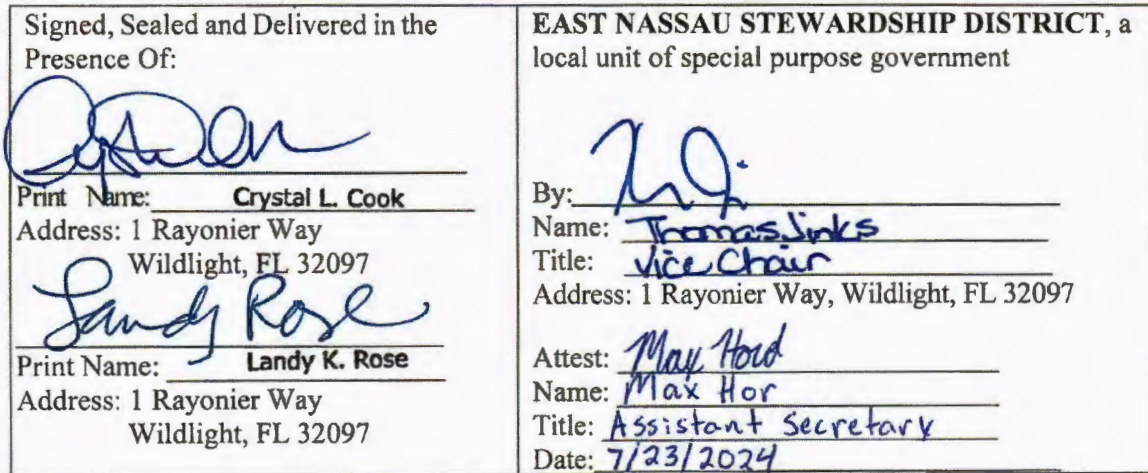 Signed, Sealed and Delivered in the
Presence Of:
Print Name: Crystal L. Cook
Address: 1 Rayonier Way
Wildlight, FL 32097
Landy Rose
Print Name: Landy K. Rose
Address: 1 Rayonier Way
Wildlight, FL 32097
EAST NASSAU STEWARDSHIP DISTRICT, a
local unit of special purpose government
By:
Name: Thomas Jinks
Title: Vice Chair
Address: 1 Rayonier Way, Wildlight, FL 32097
Attest: Max
Name: Max Hor
Title: Assistant Secretary
Date: 7/23/2024